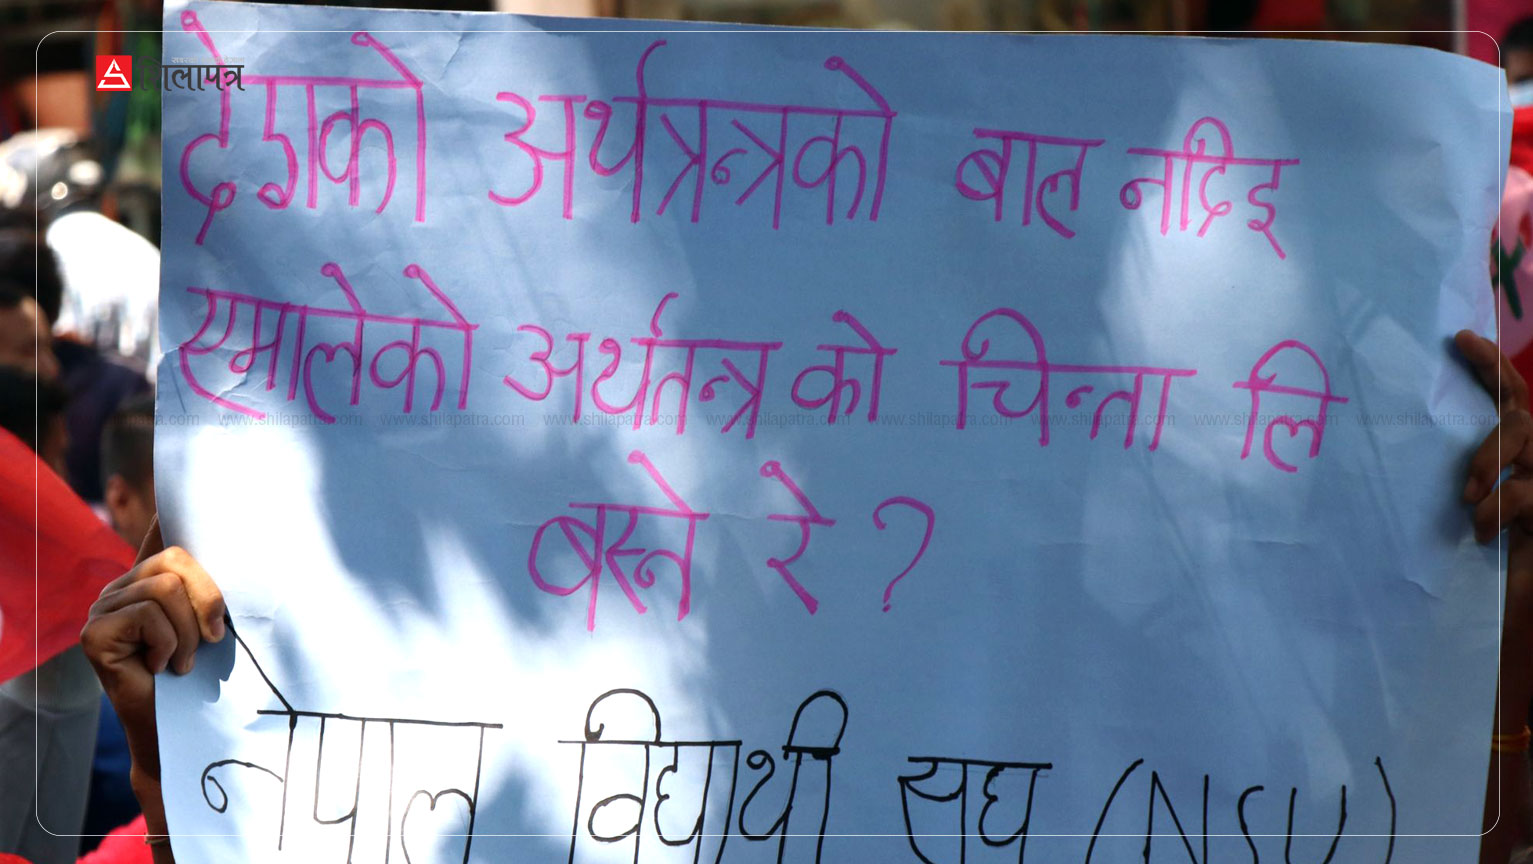 शिलापत्र
देशको अर्थत्रन्त्रको बाल नदिइ
एमालेको अर्थतन्त्र को चिन्ता लि
बस्ने रे ?
नेपाल विद्यार्थी संघ (NSU)
www.shilapatra.com www.shilapatra.com www.shilapatra.com www.shilapatra.com www.shilapatra.com www.shilapatra.com www.shilapatra.com www.shilapatra.com